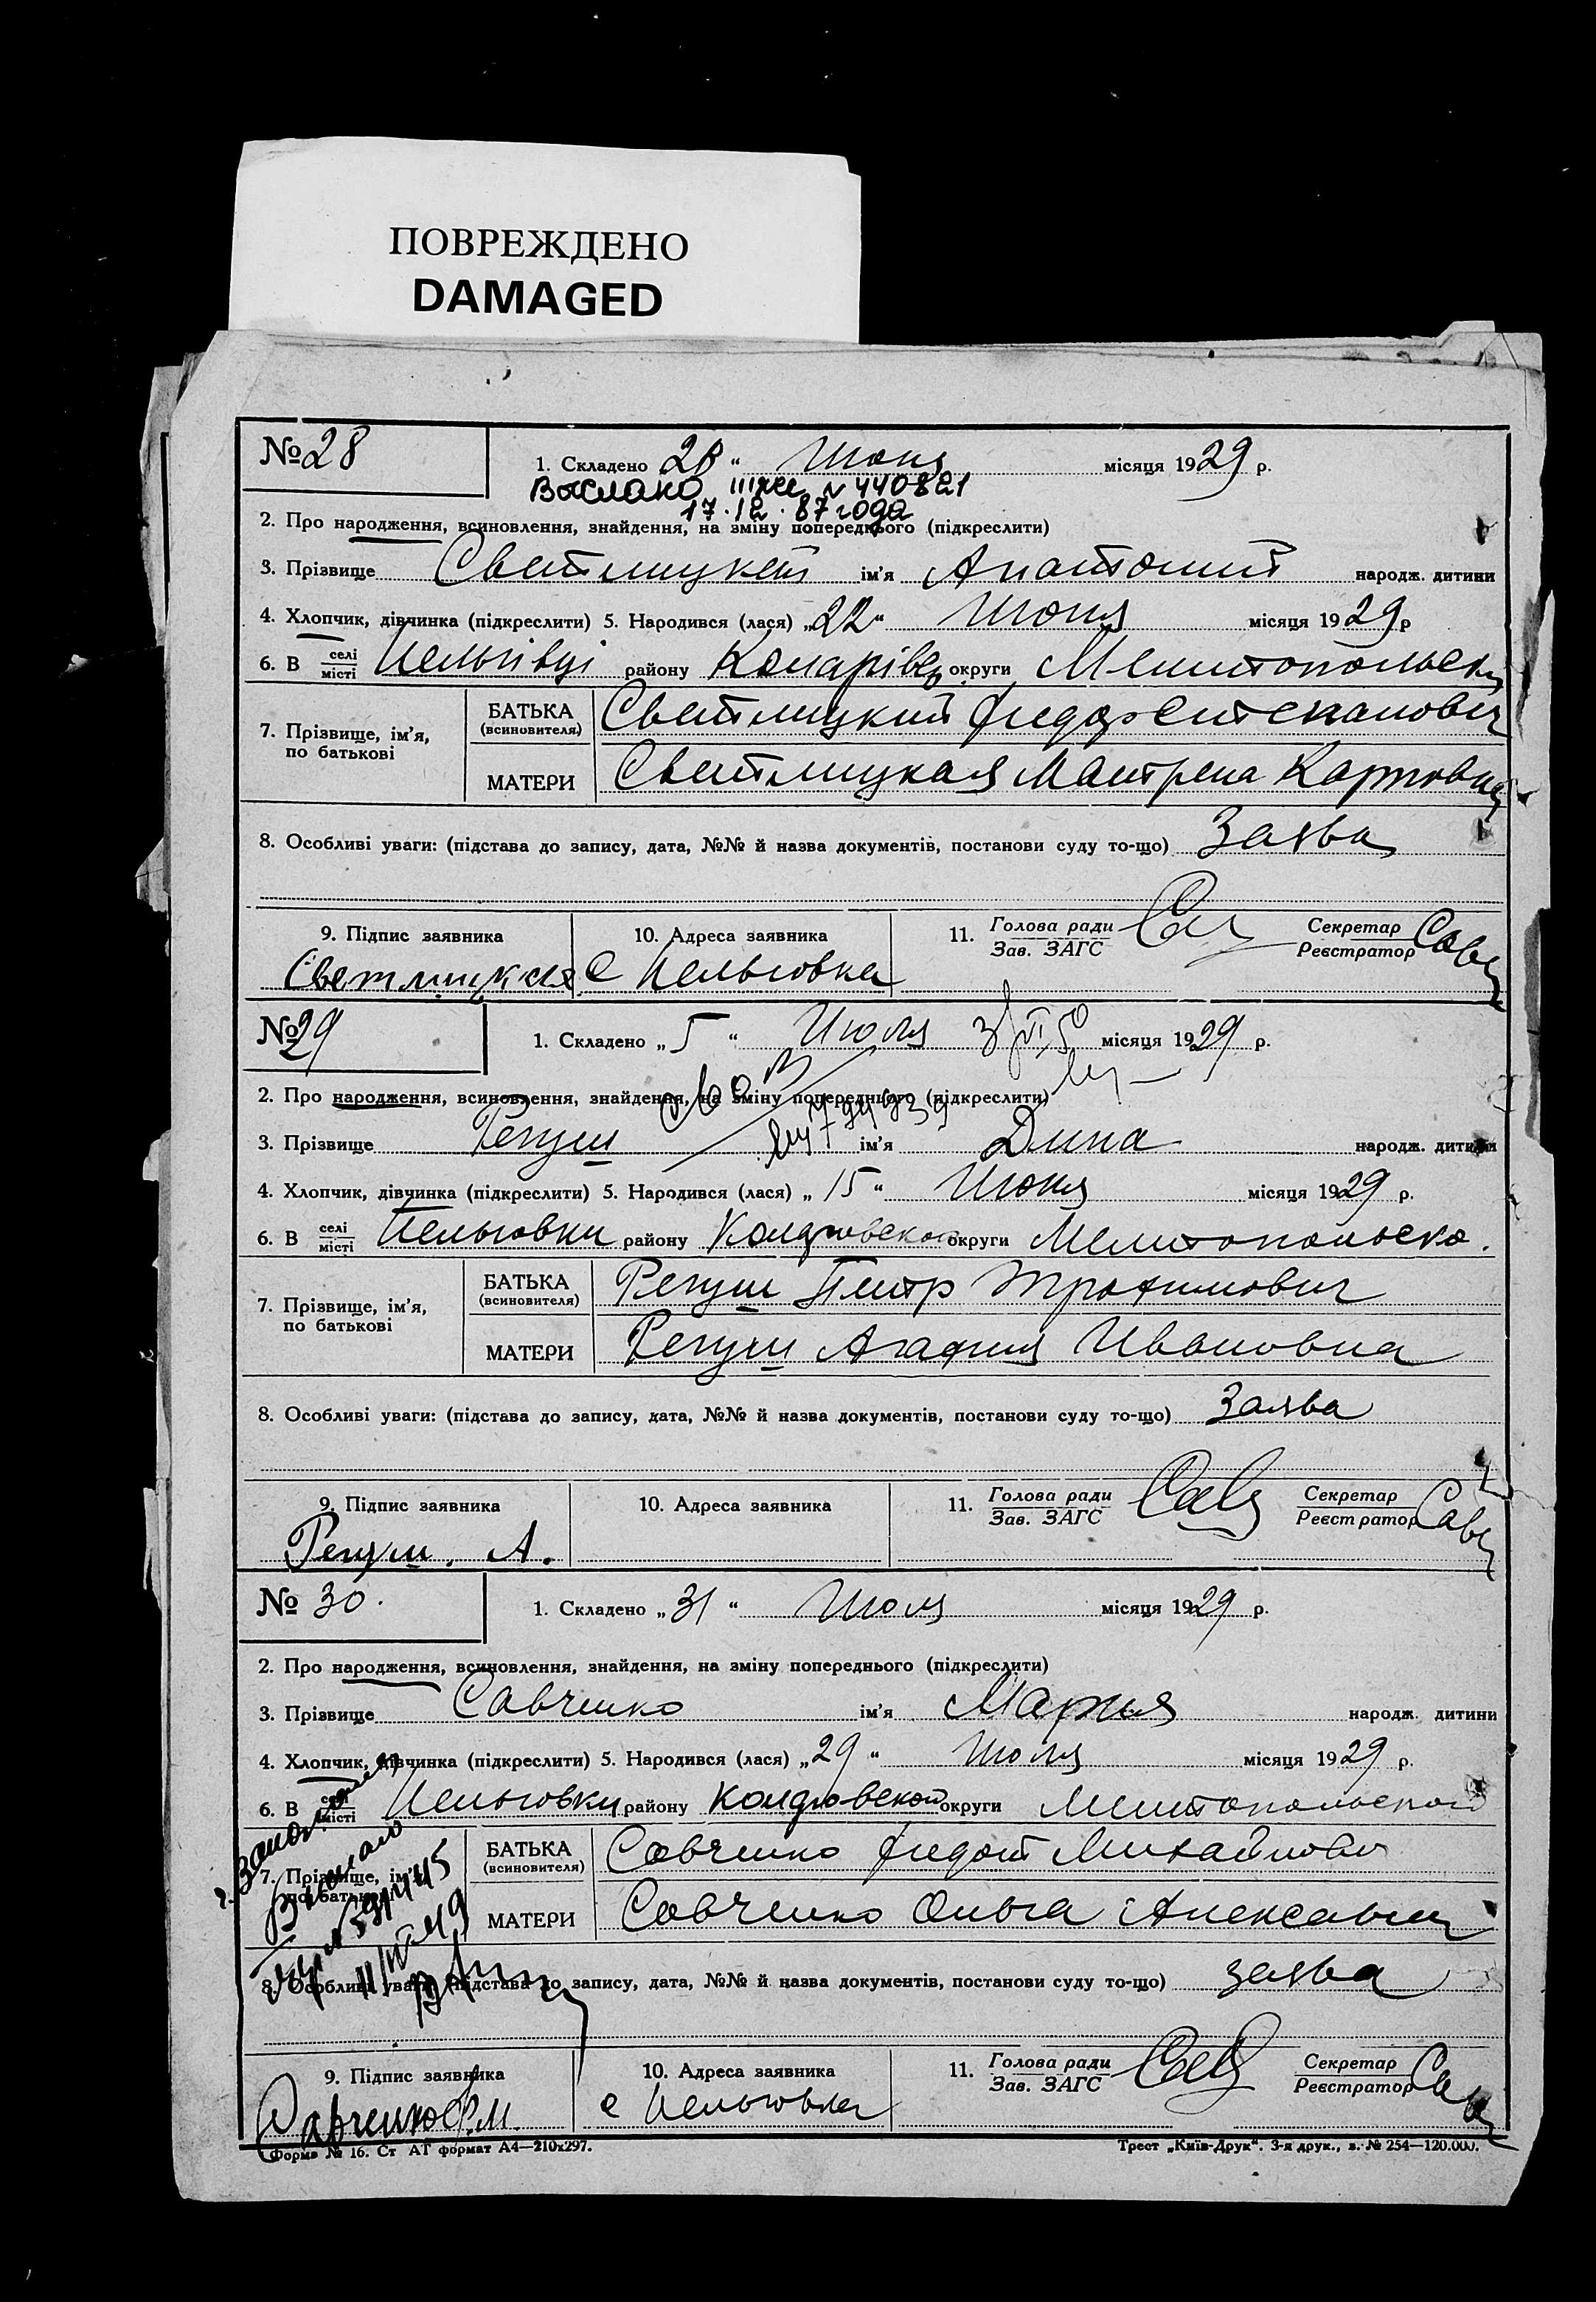 ПОВРЕЖДЕНО
DAMAGED
№ 28
1. Складено 28 “ Июня місяця 1929 р.
Выслано № 440821
17.12.87 года
2. Про народження, всиновлення, знайдення, на зміну попереднього (підкреслити)
3. Прізвище Светлицкий ім'я Анатолий народж. дитини
4. Хлопчик, дівчинка (підкреслити) 5. Народився (лася) „22“ Июня місяця 1929 р
6. В селі місті району округи
7. Прізвище, ім'я, по батькові
БАТЬКА (всиновителя) Светлицкий Федор Степанович
МАТЕРИ Светлицкая Мотрена Карповна
8. Особливі уваги: (підстава до запису, дата, №№ й назва документів, постанови суду то-що) Заява
9. Підпис заявника 10. Адреса заявника 11. Голова ради Зав. ЗАГС Секретар Реєстратор
Светлицкая с
№ 29
1. Складено „ 5 “ Июля місяця 1929 р.
2. Про народження, всиновлення, знайдення, на зміну попереднього (підкреслити)
3. Прізвище Репуш ім'я Дина народж. дитини
4. Хлопчик, дівчинка (підкреслити) 5. Народився (лася) „ 15 “ Июня місяця 1929 р.
6. В селі місті району округи Мелитопольско.
7. Прізвище, ім'я, по батькові
БАТЬКА (всиновителя) Репуш Петр Трофимович
МАТЕРИ Репуш Агафия Ивановна
8. Особливі уваги: (підстава до запису, дата, №№ й назва документів, постанови суду то-що) Заява
9. Підпис заявника 10. Адреса заявника 11. Голова ради Зав. ЗАГС Секретар Реєстратор
Репуш. А.
№ 30.
1. Складено „ 31 “ Июля місяця 1929 р.
2. Про народження, всиновлення, знайдення, на зміну попереднього (підкреслити)
3. Прізвище Савченко ім'я Мария народж. дитини
4. Хлопчик, дівчинка (підкреслити) 5. Народився (лася) „29“ Июля місяця 1929 р.
6. В селі місті району округи Мелитопольской
7. Прізвище, ім'я, по батькові
БАТЬКА (всиновителя) Савченко Федот Михайлович
МАТЕРИ Савченко Ольга Алексеевна
8. Особливі уваги: (підстава до запису, дата, №№ й назва документів, постанови суду то-що) заява
9. Підпис заявника 10. Адреса заявника 11. Голова ради Зав. ЗАГС Секретар Реєстратор
Савченко Ф.М. с
Форма № 16. Ст АТ формат А4—210х297. Трест „Київ-Друк“. 3-я друк., з. № 254—120.000.